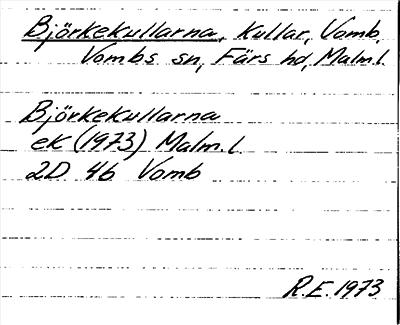 Björkekullarna, Kullar, Vomb,
Vombs sn, Färs hd, Malm.l.
Björkekullarna
ek (1973) Malm.l
2D 4b Vomb
R.E. 1973